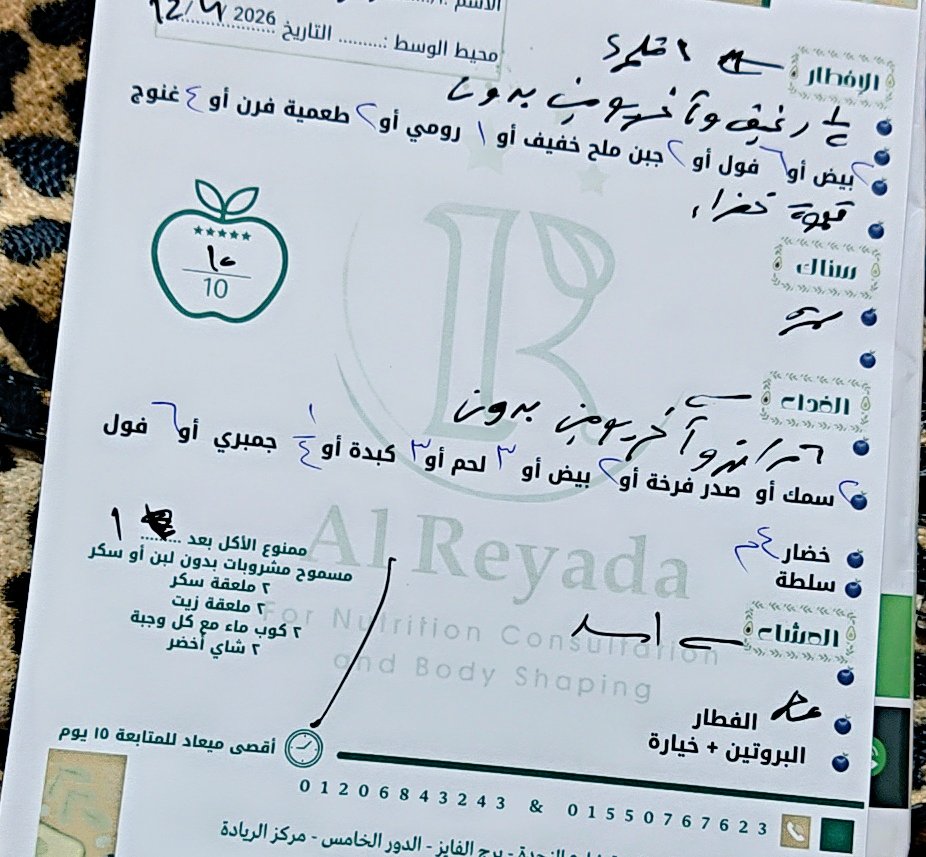 الاسم
محيط الوسط : ......... التاريخ 12/4/2026
الإفطار
1/2 رغيف وآخر يومين بدون
٢ بيض أو ٦ فول أو ٢ جبن ملح خفيف أو ١ رومي أو ٢ طعمية فرن أو ٤ غنوج
قهوة خضراء
١٠
10
سناك
ثمرة
الغداء
وآخر يومين بدون
٢ سمك أو صدر فرخة أو ٢ بيض أو ٣ لحم أو ٣ كبدة أو ١/٤ جمبري أو ٦ فول
خضار ٤ م
سلطة
ممنوع الأكل بعد ........ ١
مسموح مشروبات بدون لبن أو سكر
٢ ملعقة سكر
٢ ملعقة زيت
٢ كوب ماء مع كل وجبة
٢ شاي أخضر
Al Reyada
For Nutrition Consultation
and Body Shaping
العشاء
الفطار
البروتين + خيارة
أقصى ميعاد للمتابعة ١٥ يوم
01206843243 & 01550767623
النجدة - برج الفايز - الدور الخامس - مركز الريادة